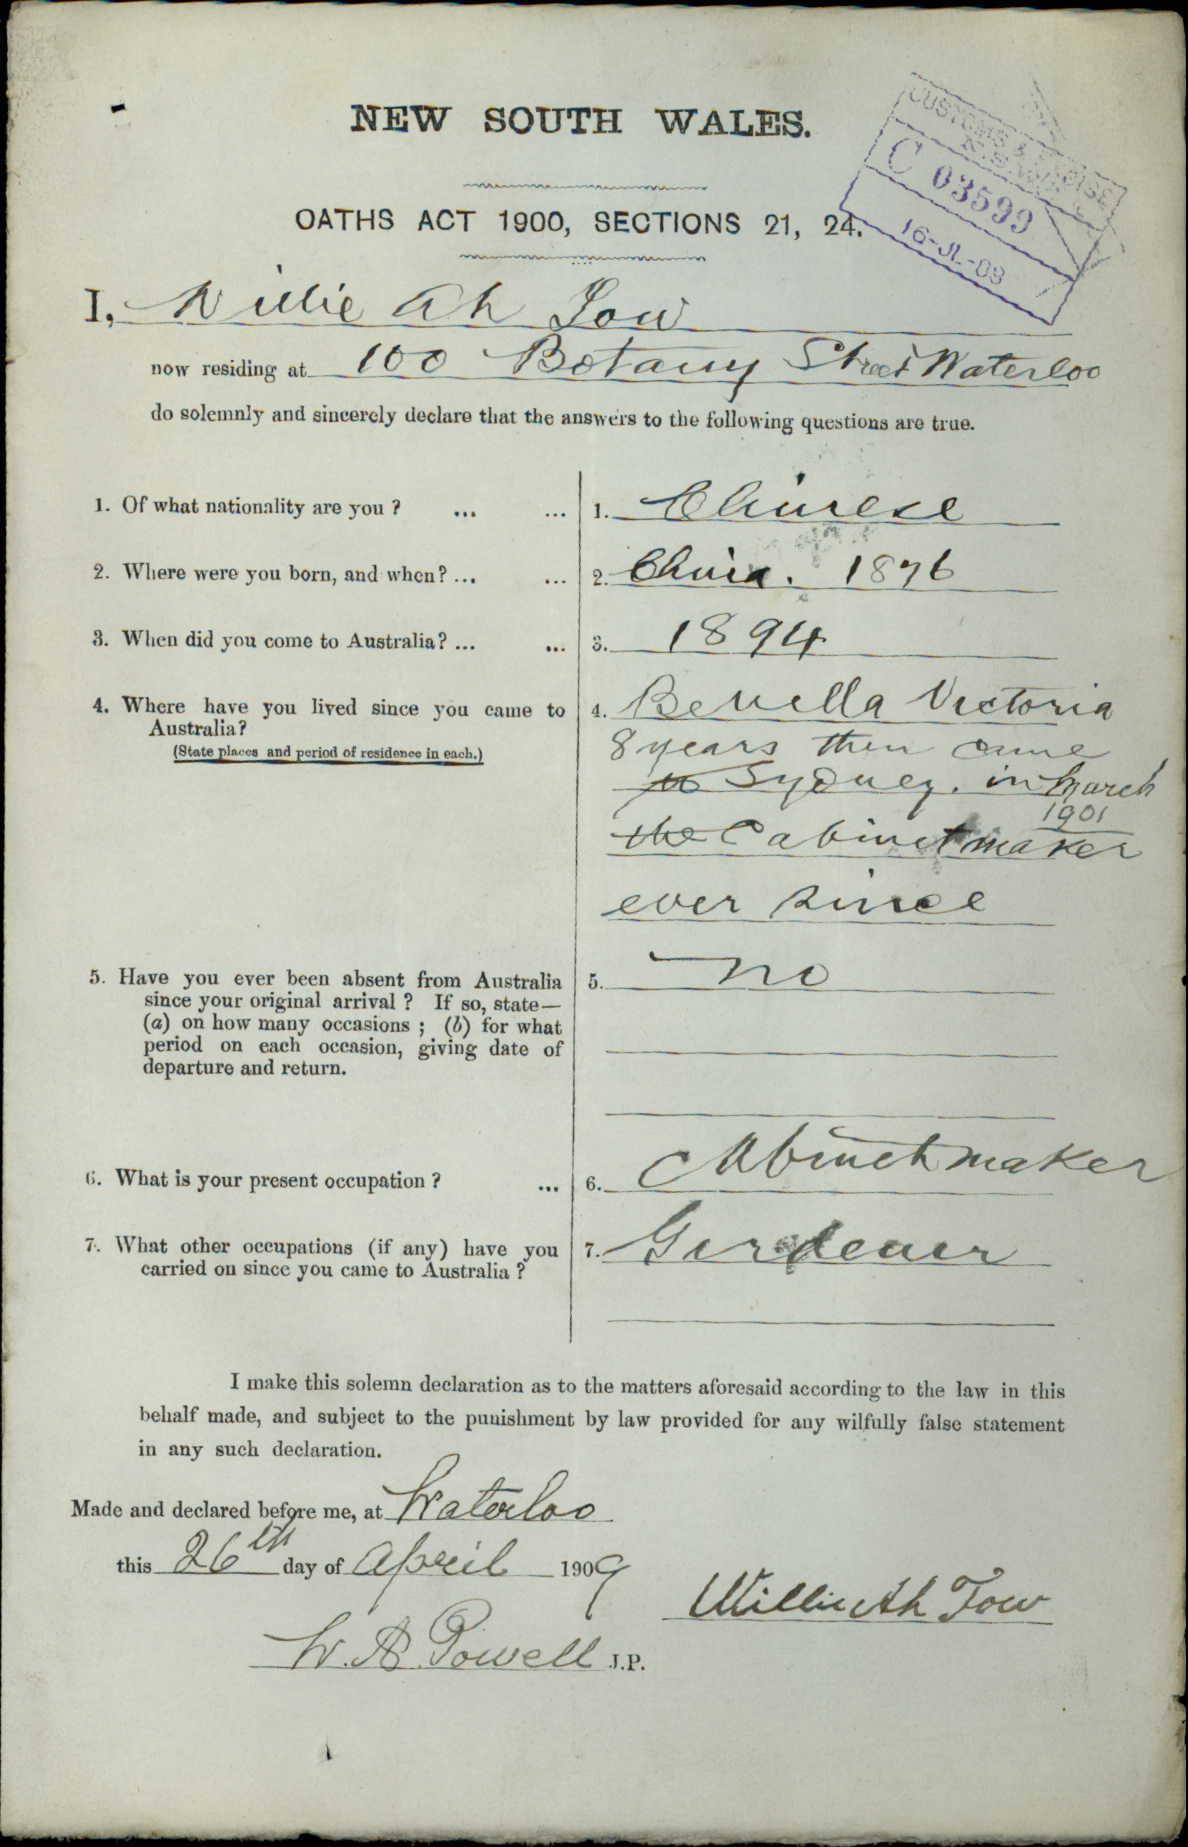 NEW SOUTH WALES.
CUSTOMS & EXCISE
N.S.W.
C 03599
16-JL-09
OATHS ACT 1900, SECTIONS 21, 24.
I, Willie Ah Tow
now residing at 100 Botany Street Waterloo
do solemnly and sincerely declare that the answers to the following questions are true.
1. Of what nationality are you ? ... ... 1. Chinese
2. Where were you born, and when? ... ... 2. China. 1876
3. When did you come to Australia? ... ... 3. 1894
4. Where have you lived since you came to 4. Benella Victoria
Australia?
(State places and period of residence in each.)
8 years then came
to Sydney. in March
1901
the Cabinetmaker
ever since
5. Have you ever been absent from Australia 5. no
since your original arrival ? If so, state—
(a) on how many occasions ; (b) for what
period on each occasion, giving date of
departure and return.
6. What is your present occupation ? ... 6. Cabinetmaker
7. What other occupations (if any) have you 7. Gardener
carried on since you came to Australia ?
I make this solemn declaration as to the matters aforesaid according to the law in this
behalf made, and subject to the punishment by law provided for any wilfully false statement
in any such declaration.
Made and declared before me, at Waterloo
this 26th day of April 1909
Willie Ah Tow
W. A. Powell J.P.